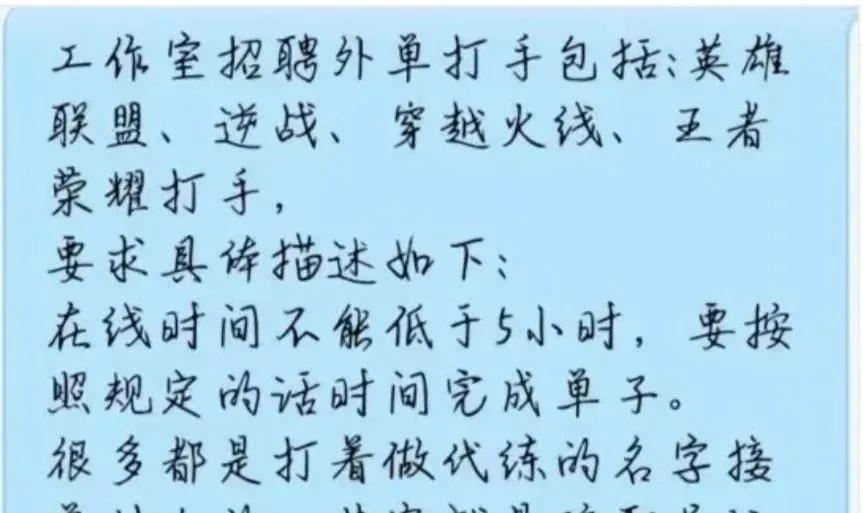 工作室招聘外单打手包括:英雄
联盟、逆战、穿越火线、王者
荣耀打手,
要求具体描述如下:
在线时间不能低于5小时, 要按
照规定的话时间完成单子。
很多都是打着做代练的名字接